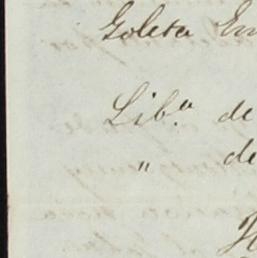 Goleta
Lib.ª de
" de